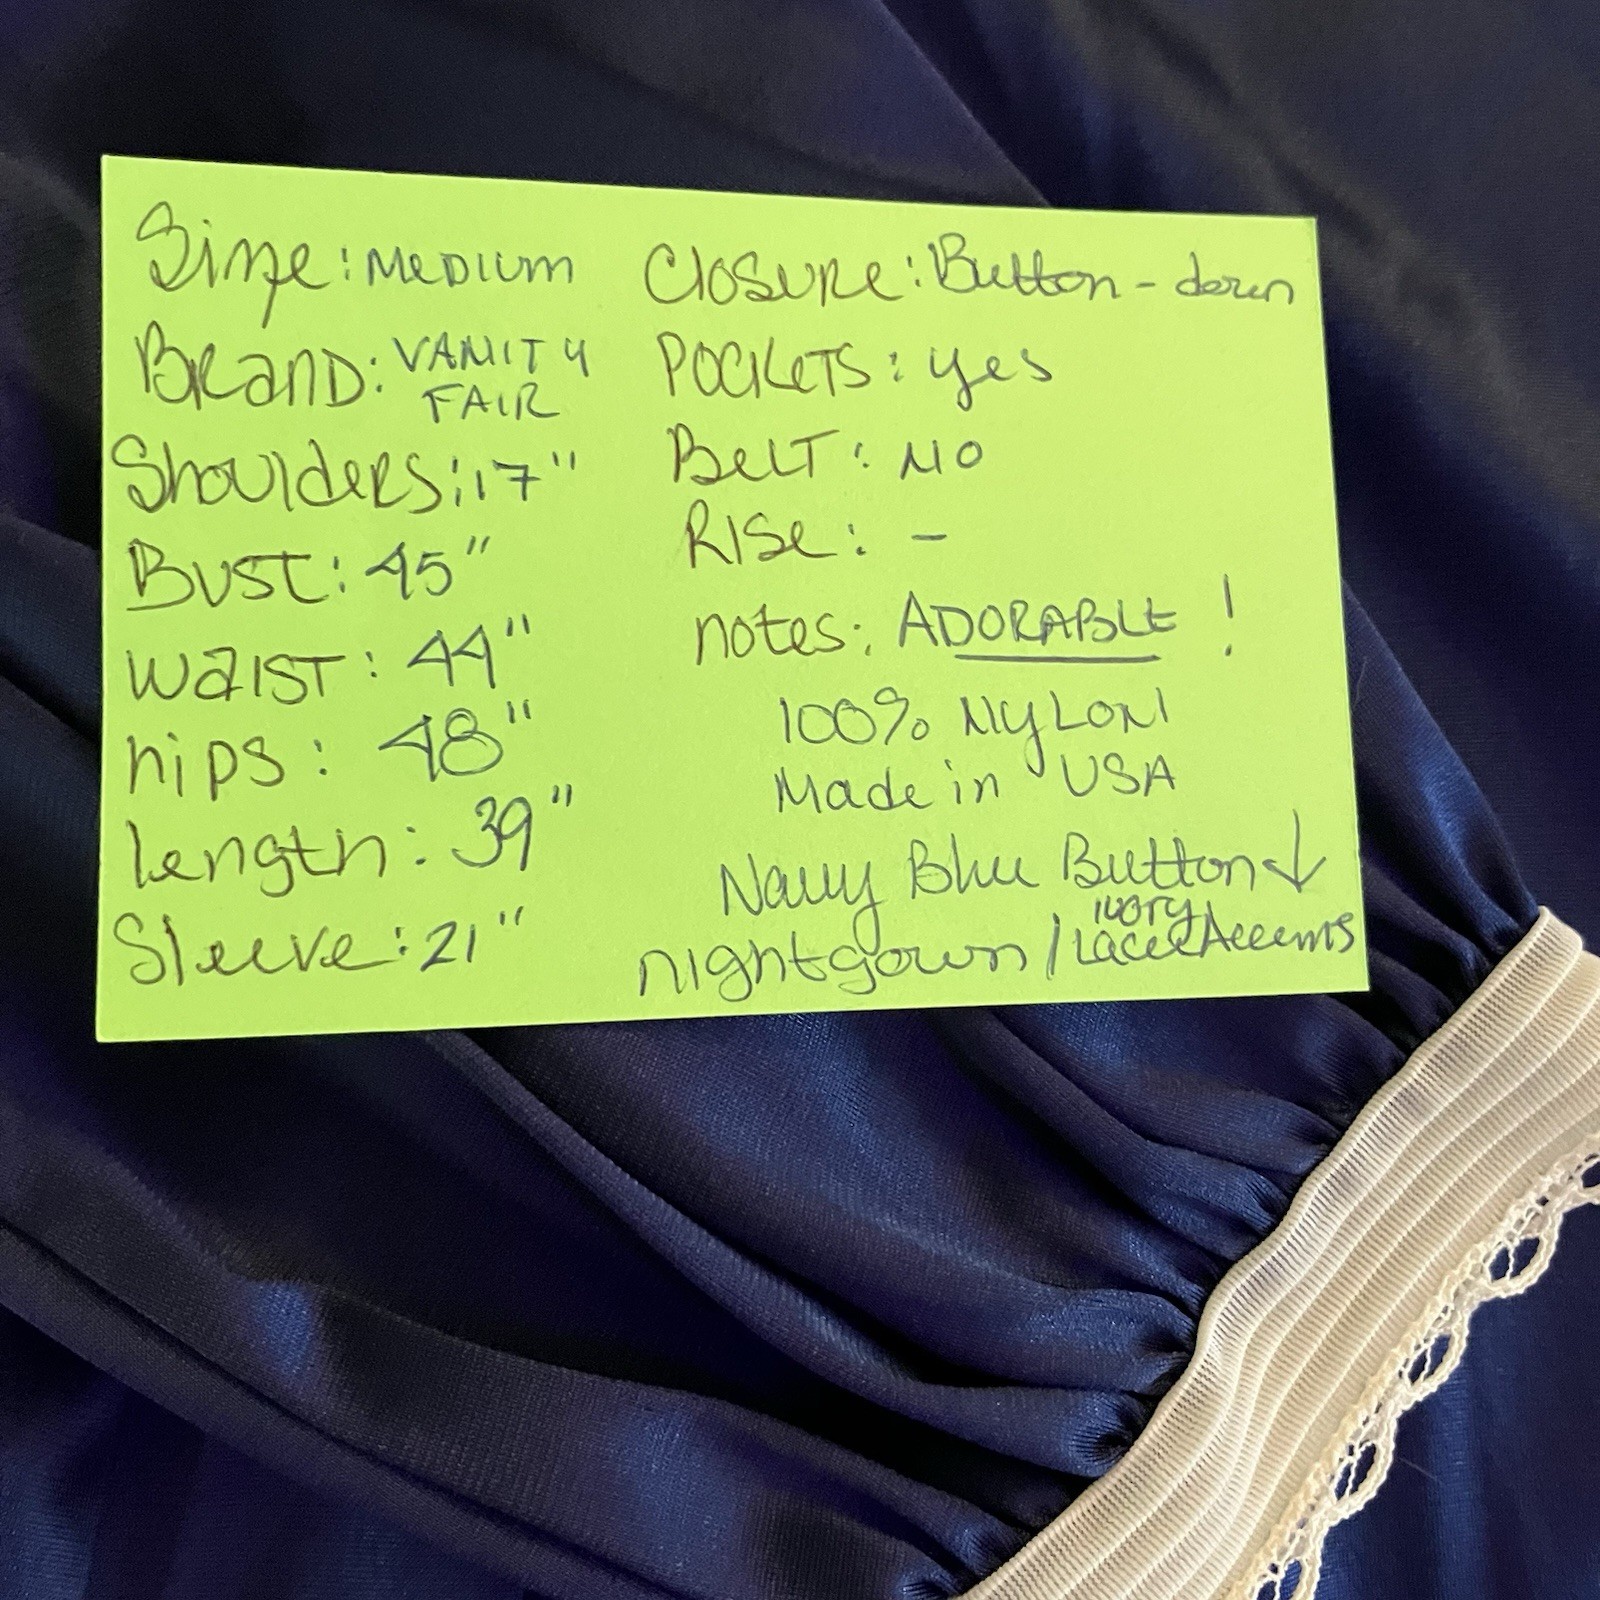 Size: MEDIUM
BRAND: VANITY
FAIR
Shoulders: 17"
BUST: 45"
WAIST: 44"
hips: 48"
length: 39"
Sleeve: 21"
CLOSURE: Button-down
POCKETS: yes
BELT: NO
RISE: -
notes: ADORABLE !
100% NYLON
Made in USA
Navy Blue Button ↓
nightgown / ivory Lace Accents